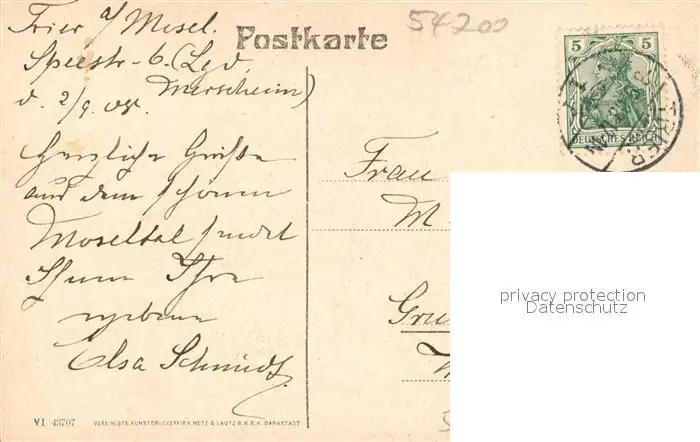 Trier a/ Mosel.
Speestr. 6. (Lgd.
Merscheim)
d. 2/9. 08.
Postkarte
54200
5 5
DEUTSCHES REICH
TRIER
Herzliche Grüße
aus dem schönen
Moseltal sendet
Ihnen Ihre
ergebene
Elsa Schmidt.
Frau
M
Gru
privacy protection
Datenschutz
VI 43707 VEREINIGTE KUNSTDRUCKEREIEN METZ & LAUTZ G.M.B.H. DARMSTADT